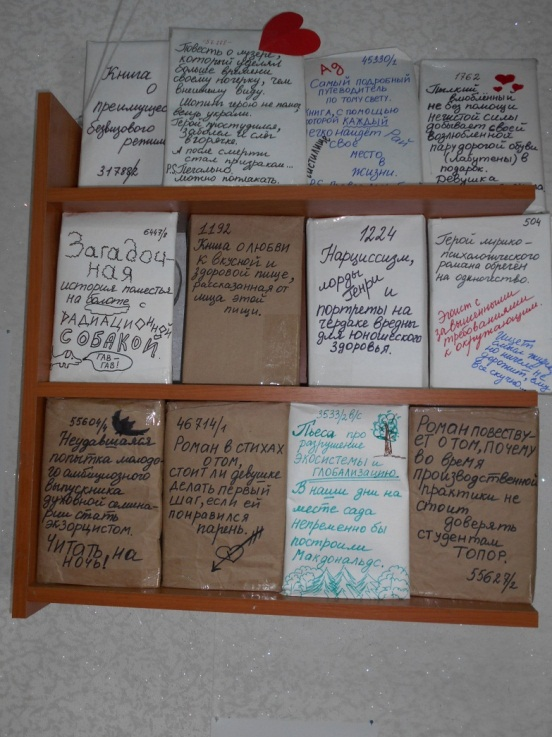 Книга
о
преимущес
безвизового
режим
31788/2
Повесть о лузере,
который уделял
больше времени
своему почерку, чем
внешнему виду.
Шопит герою не помог
вещь украли.
Герой простудился,
заболел и слёг
в горячке.
А после смерти
стал призраком...
P.S. Печально,
можно поплакать.
45330/2
Ад
Самый подробный
путеводитель
по тому свету.
Книга, с помощью
которой каждый
легко найдёт
своё
место
в
жизни.
1762
Пылкий
влюблённый
не без помощи
нечистой силы
добывает своей
возлюбленной
пару дорогой обуви
(лабутены) в
подарок.
Девушка
6447/2
Загадоч-
ная
история поместья
на болоте с
РАДИАЦИОННОЙ
СОБАКОЙ
ГАВ-
ГАВ!
1192
Книга о любви
к вкусной и
здоровой пище,
рассказанная от
лица этой
пищи.
1224
Нарциссизм,
лорды
Генри и
портреты на
чердаке вредны
для юношеского
здоровья.
504
Герой лирико-
психологического
романа обречён
на одиночество.
Эгоист с
завышенными
требованиями
к окружающим.
Ищет
не
всё скучно
55604/2
Неудавшаяся
попытка молодо-
го амбициозного
выпускника
духовной семина-
рии стать
экзорцистом.
Читать на
ночь!
46714/1
Роман в стихах
о том,
стоит ли девушке
делать первый
шаг, если ей
понравился
парень.
3533/2
Пьеса про
разрушение
экосистемы и
глобализацию.
В наши дни на
месте сада
непременно бы
построили
Макдональдс.
Роман повеству-
ет о том, почему
во время
производственной
практики не
стоит
доверять
студентам
ТОПОР.
55627/2